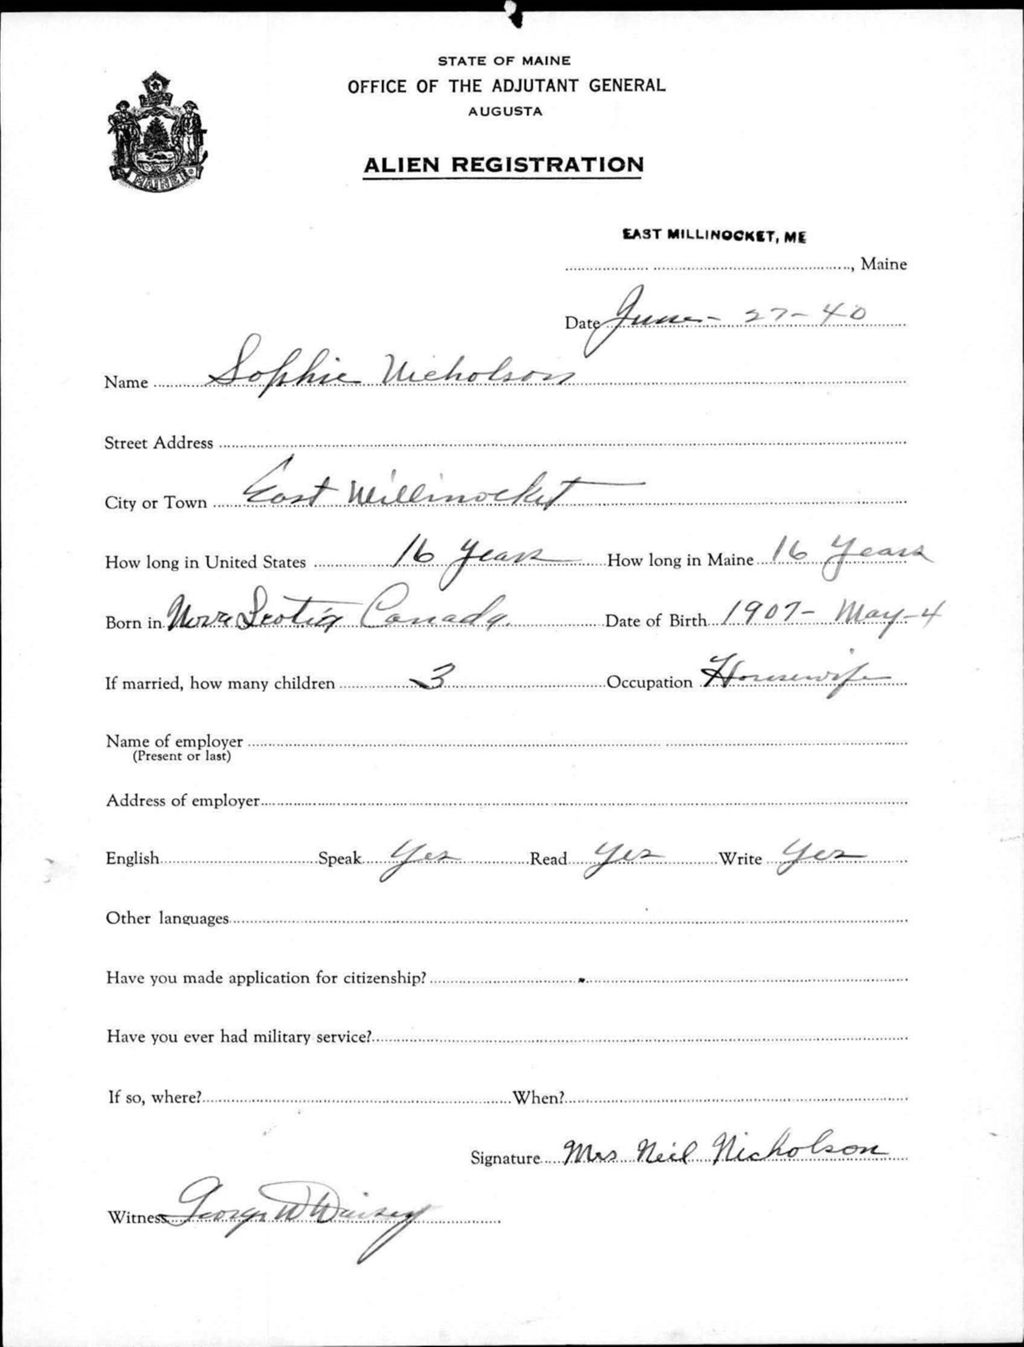 STATE OF MAINE
OFFICE OF THE ADJUTANT GENERAL
AUGUSTA
ALIEN REGISTRATION
MAINE
EAST MILLINOCKET, ME
, Maine
Date June - 27 - 40
Name Sophie Nicholson
Street Address
City or Town East Millinocket
How long in United States 16 years How long in Maine 16 years
Born in Nova Scotia Canada. Date of Birth 1907 - May - 4
If married, how many children 3 Occupation Housewife
Name of employer
(Present or last)
Address of employer
English Speak Yes Read Yes Write Yes
Other languages
Have you made application for citizenship?
Have you ever had military service?
If so, where? When?
Signature Mrs Neil Nicholson
Witness George W